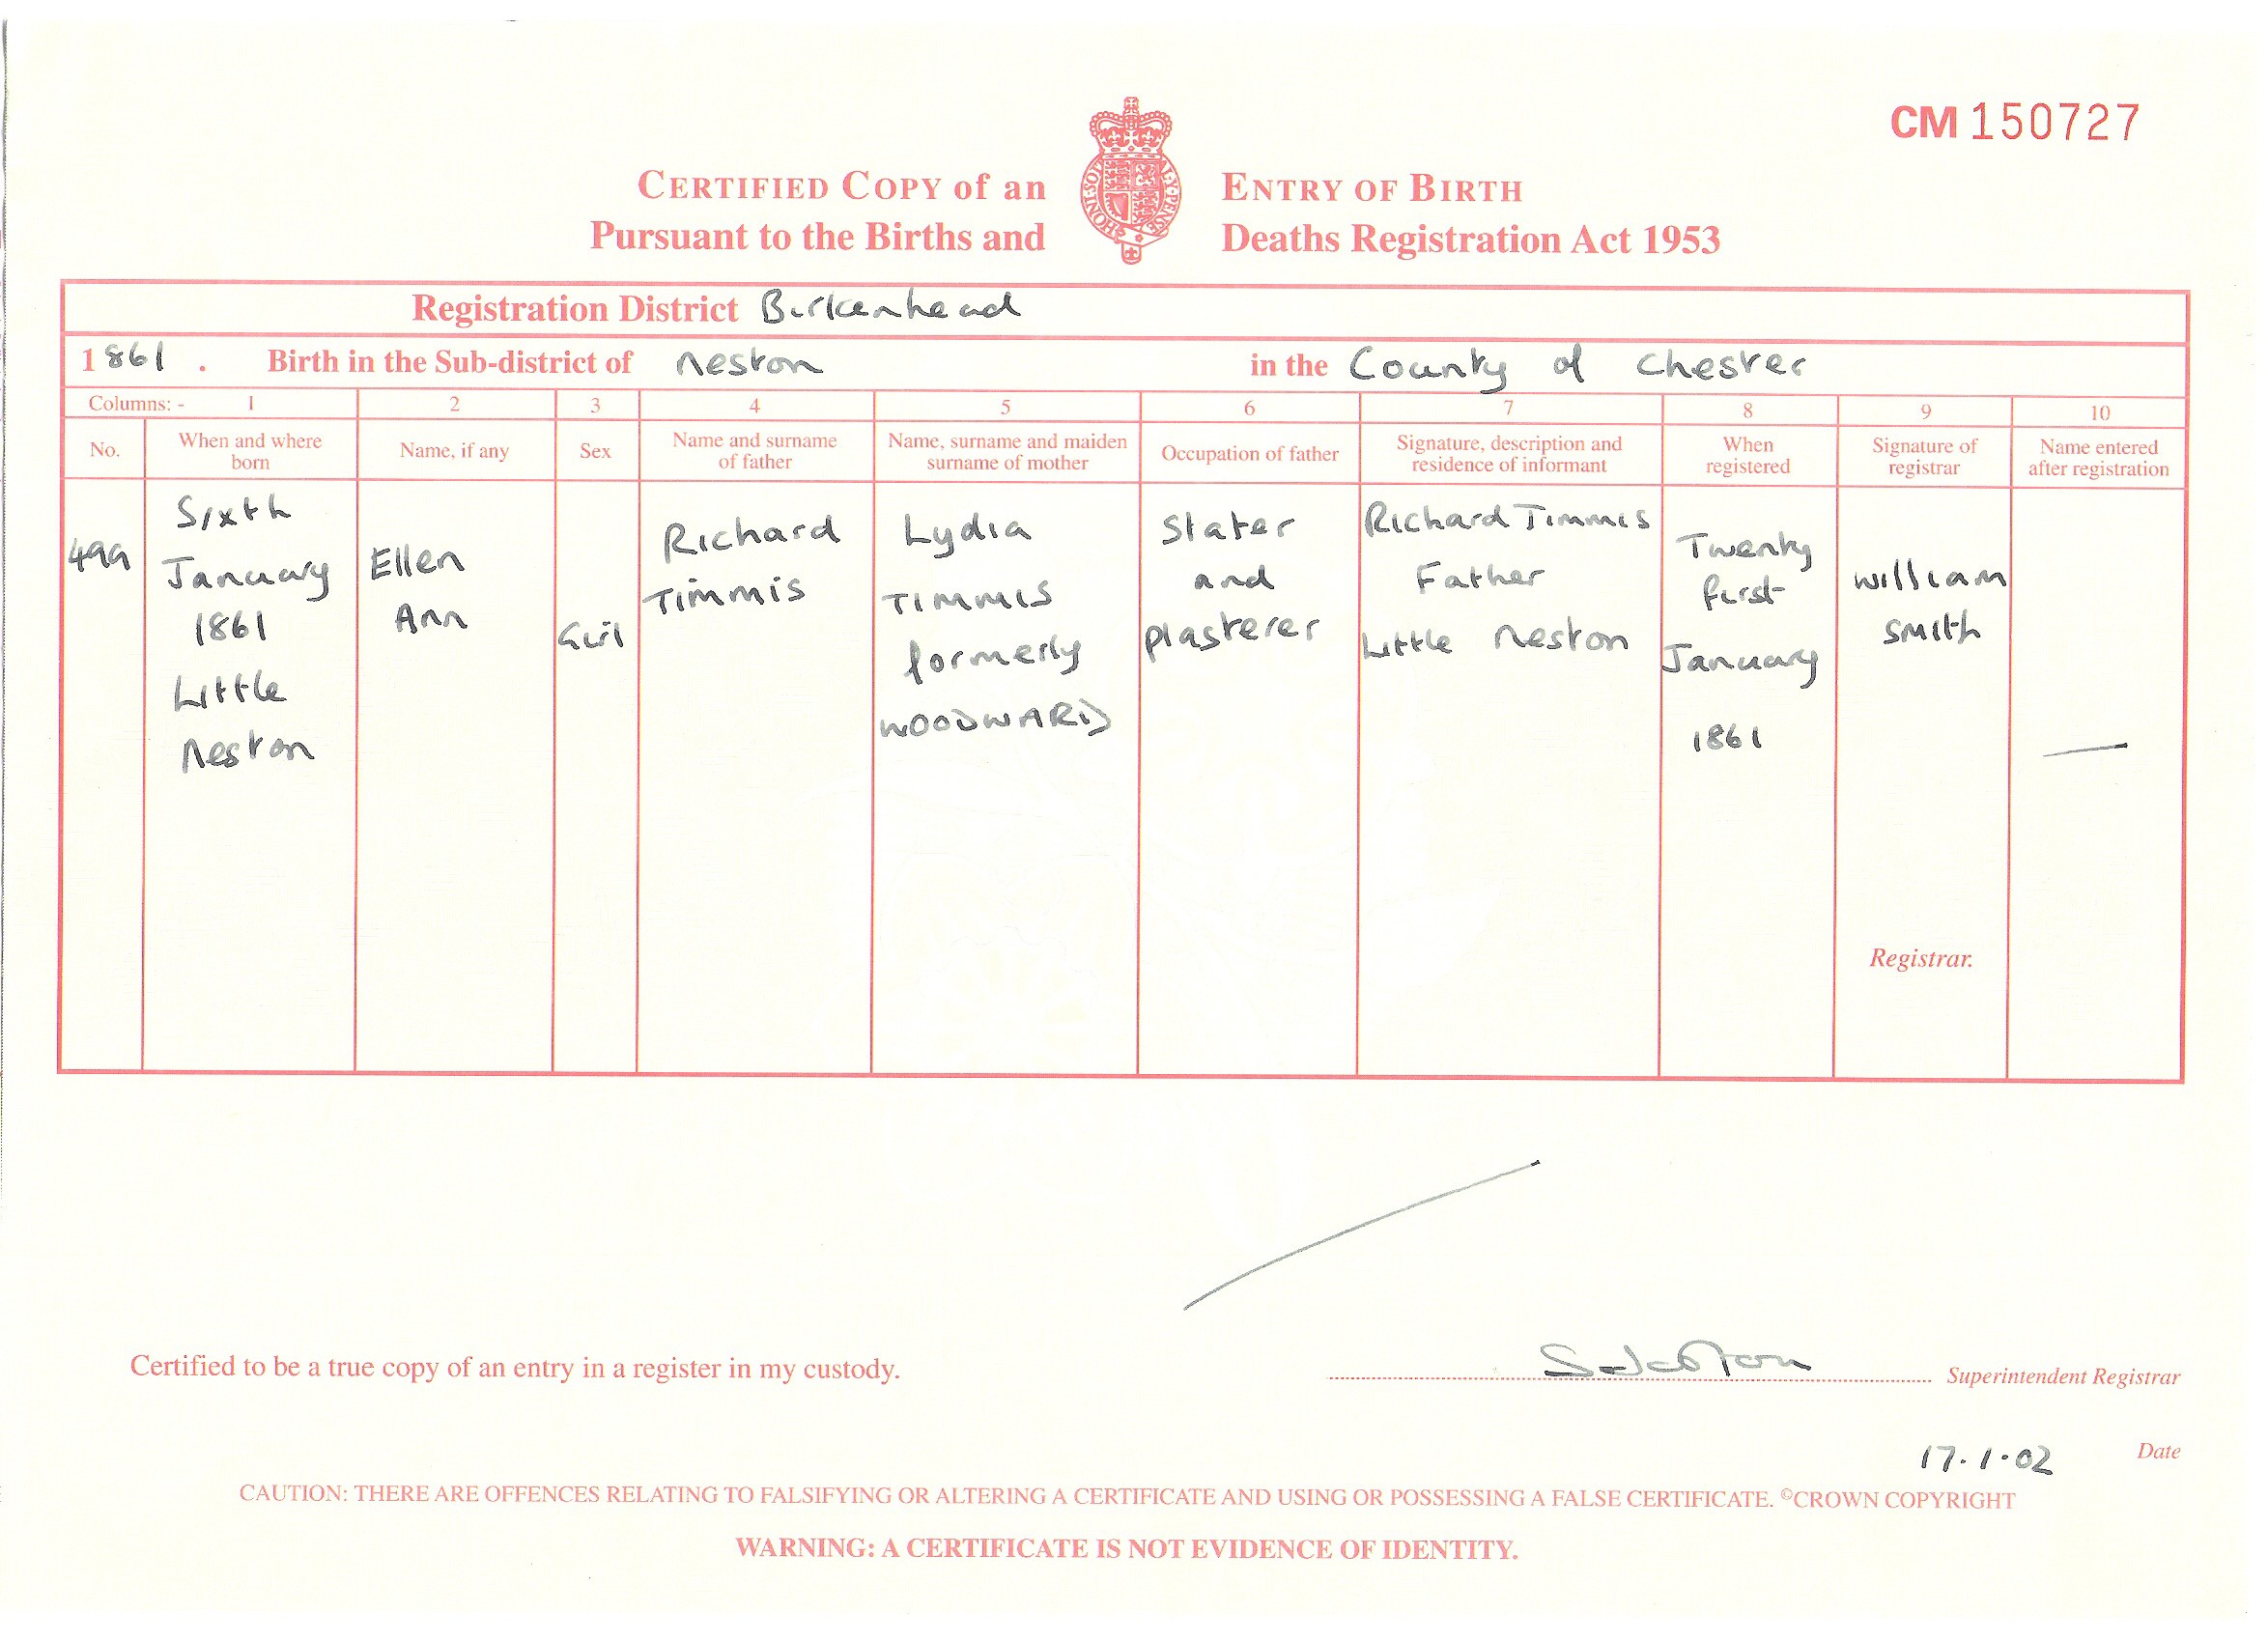 CM 150727
CERTIFIED COPY of an ENTRY OF BIRTH
Pursuant to the Births and Deaths Registration Act 1953
Registration District Birkenhead
1861 . Birth in the Sub-district of Neston in the County of Chester
Columns: - 1 2 3 4 5 6 7 8 9 10
No.
When and where
born
Name, if any
Sex
Name and surname
of father
Name, surname and maiden
surname of mother
Occupation of father
Signature, description and
residence of informant
When
registered
Signature of
registrar
Name entered
after registration
499
Sixth
January
1861
Little
Neston
Ellen
Ann
Girl
Richard
Timmis
Lydia
Timmis
formerly
WOODWARD
Slater
and
plasterer
Richard Timmis
Father
Little Neston
Twenty
first
January
1861
William
Smith
Registrar.
Certified to be a true copy of an entry in a register in my custody.
Superintendent Registrar
17.1.02 Date
CAUTION: THERE ARE OFFENCES RELATING TO FALSIFYING OR ALTERING A CERTIFICATE AND USING OR POSSESSING A FALSE CERTIFICATE. ©CROWN COPYRIGHT
WARNING: A CERTIFICATE IS NOT EVIDENCE OF IDENTITY.